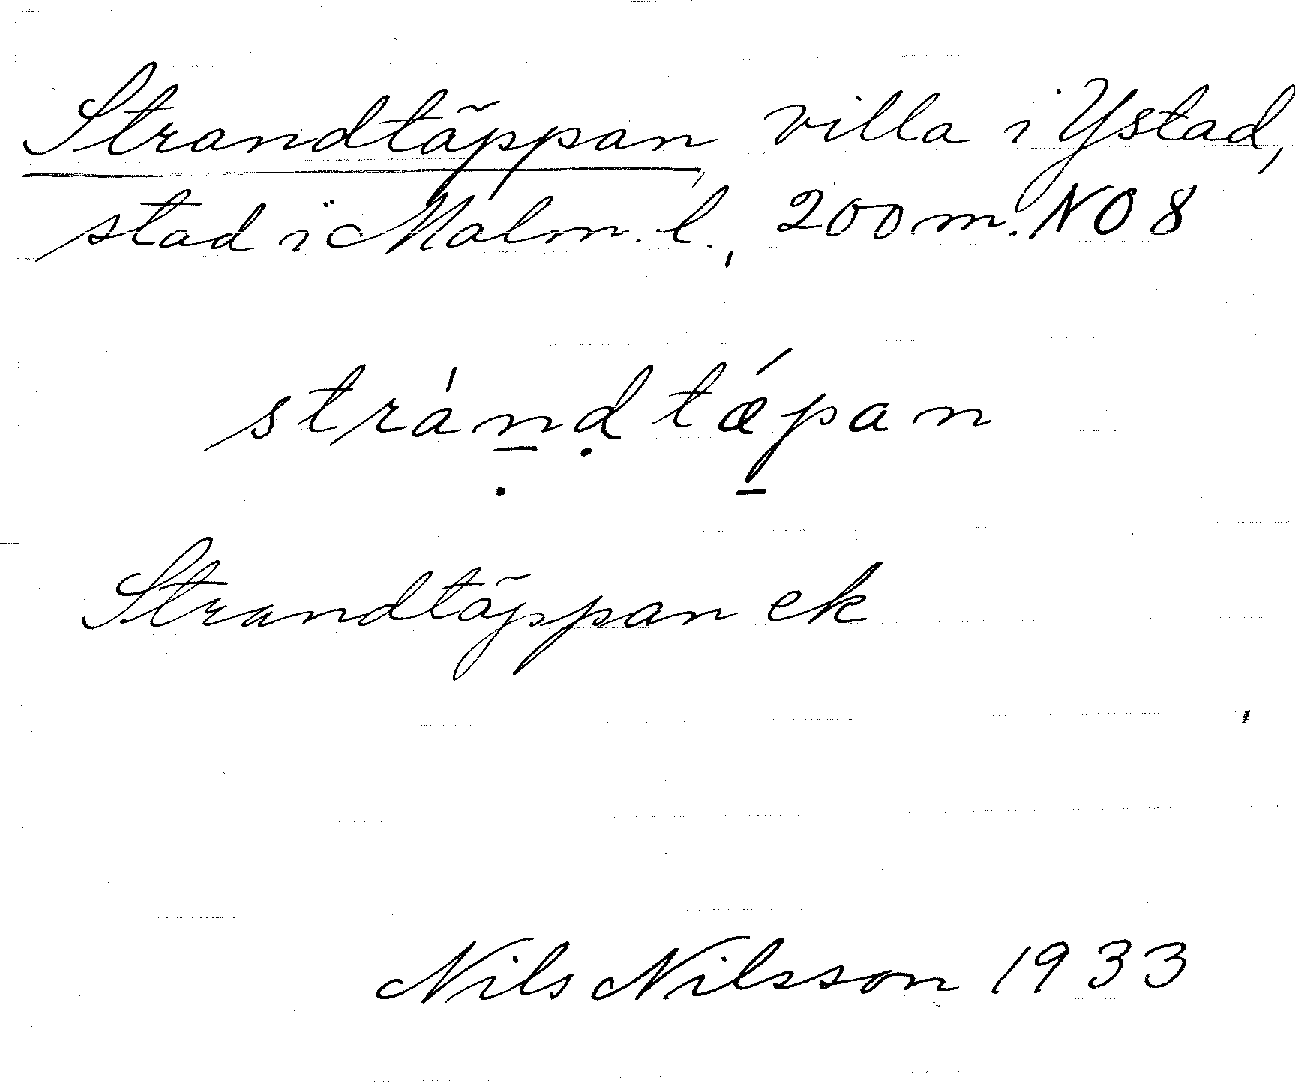 Strandtäppan villa i Ystad,
stad i Malm. l., 200 m. NO 8
strándtǽpan
Strandtäppan ek
Nils Nilsson 1933